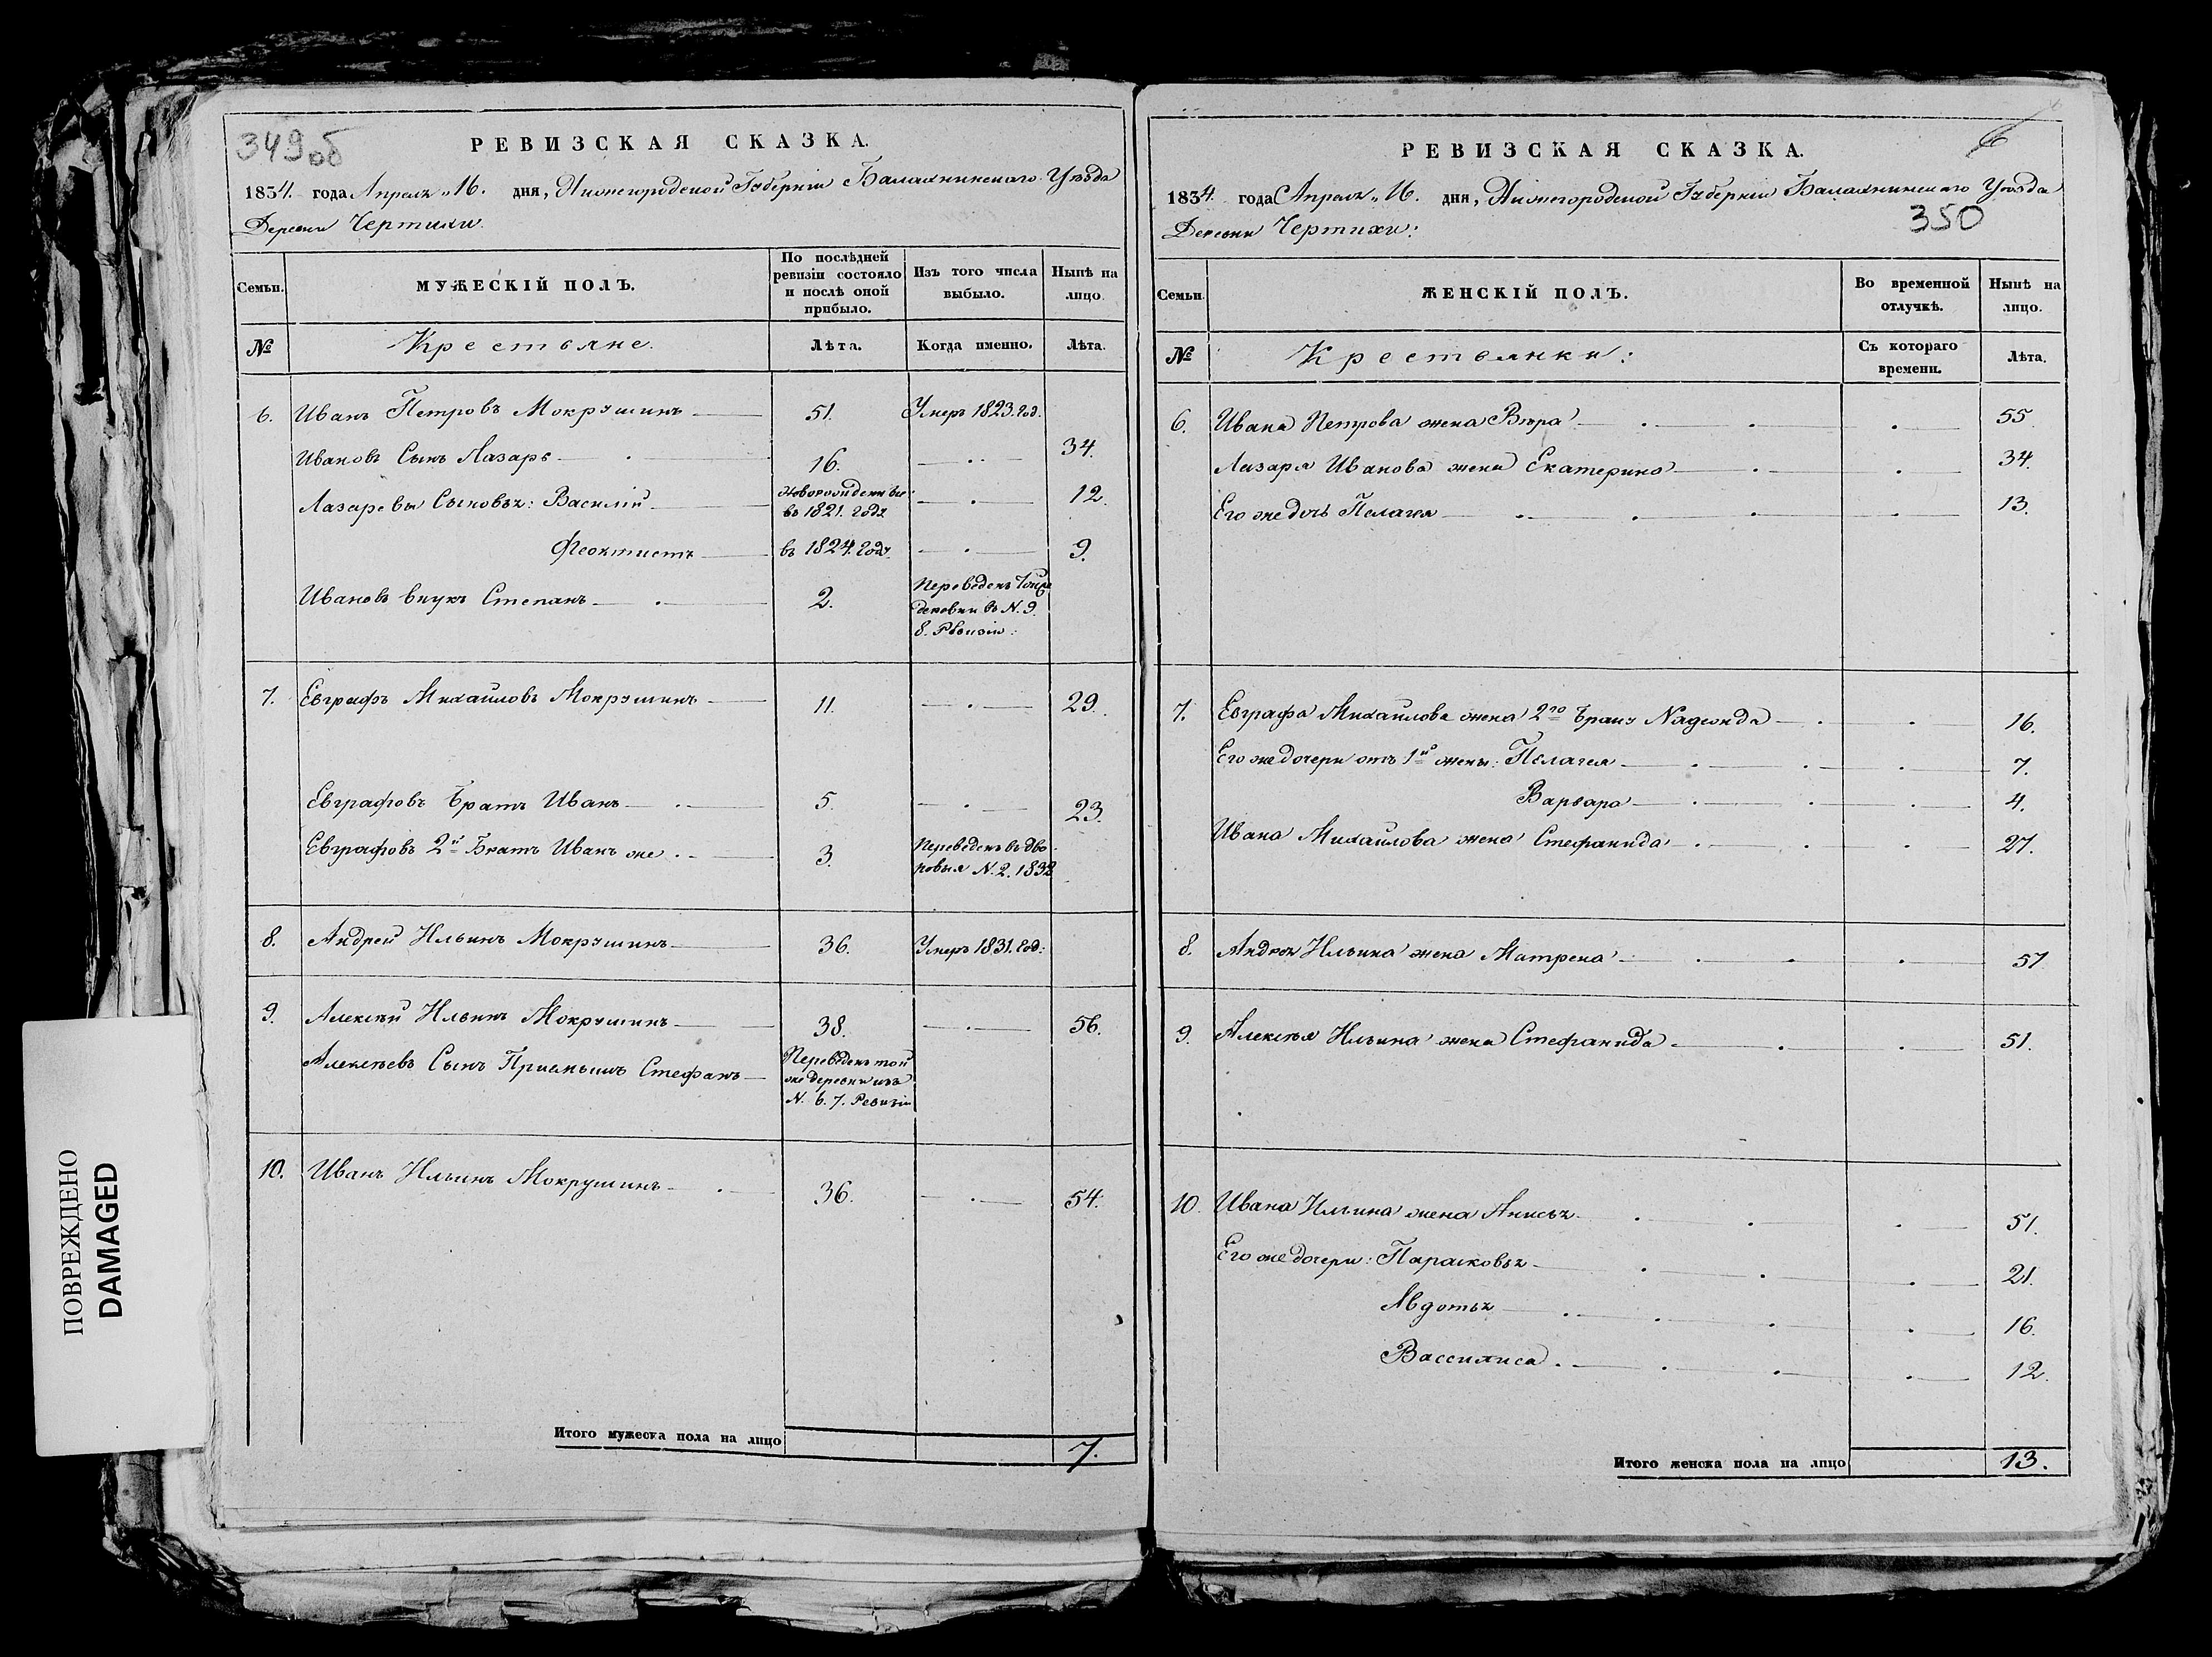 349об
РЕВИЗСКАЯ СКАЗКА.
1834. года Апреля „16. дня, Нижегородской Губерніи Балахнинскаго Уѣзда
Деревни Чертихи.
Семьи. МУЖЕСКІЙ ПОЛЪ. По послѣдней ревизіи состояло и послѣ оной прибыло. Изъ того числа выбыло. Нынѣ на лицо.
№ Крестьяне. Лѣта. Когда именно. Лѣта.
6. Иванъ Петровъ Мокрушинъ 51. Умеръ 1823. год.
Ивановъ Сынъ Лазарь 16. 34.
Лазаревы Сыновья: Василій Новорожденные въ 1821. году 12.
Феоктистъ въ 1824. году. 9.
Ивановъ внукъ Степанъ 2. Переведенъ той же деревни въ N. 9. 8. Ревизіи:
7. Евграфъ Михайловъ Мокрушинъ 11. 29.
Евграфовъ Братъ Иванъ 5. 23.
Евграфовъ 2й Братъ Иванъ же 3. Переведенъ въ дворовыя N. 2. 1832
8. Андрей Ильинъ Мокрушинъ 36. Умеръ 1831. год:
9. Алексѣй Ильинъ Мокрушинъ 38. 56.
Алексѣевъ Сынъ Приемышъ Стефанъ Переведенъ той же деревни изъ N. 6. 7. Ревизіи
10. Иванъ Ильинъ Мокрушинъ 36. 54.
Итого мужеска пола на лицо 7.
6
РЕВИЗСКАЯ СКАЗКА.
1834. года Апреля „16. дня, Нижегородской Губерніи Балахнинскаго Уѣзда
350
Деревни Чертихи:
Семьи. ЖЕНСКІЙ ПОЛЪ. Во временной отлучкѣ. Нынѣ на лицо.
№ Крестьянки: Съ котораго времени. Лѣта.
6. Ивана Петрова жена Вѣра 55
Лазаря Иванова жена Екатерина 34.
Его же дочь Пелагея 13.
7. Евграфа Михайлова жена 2го браку Надежда 16.
Его же дочери отъ 1й жены: Пелагея 7.
Варвара 4.
Ивана Михайлова жена Стефанида 27.
8. Андрея Ильина жена Матрена 57
9. Алексѣя Ильина жена Стефанида 51.
10. Ивана Ильина жена Анисья 51.
Его же дочери: Парасковья 21.
Авдотья 16.
Вассилиса 12.
Итого женска пола на лицо 13.
ПОВРЕЖДЕНО
DAMAGED